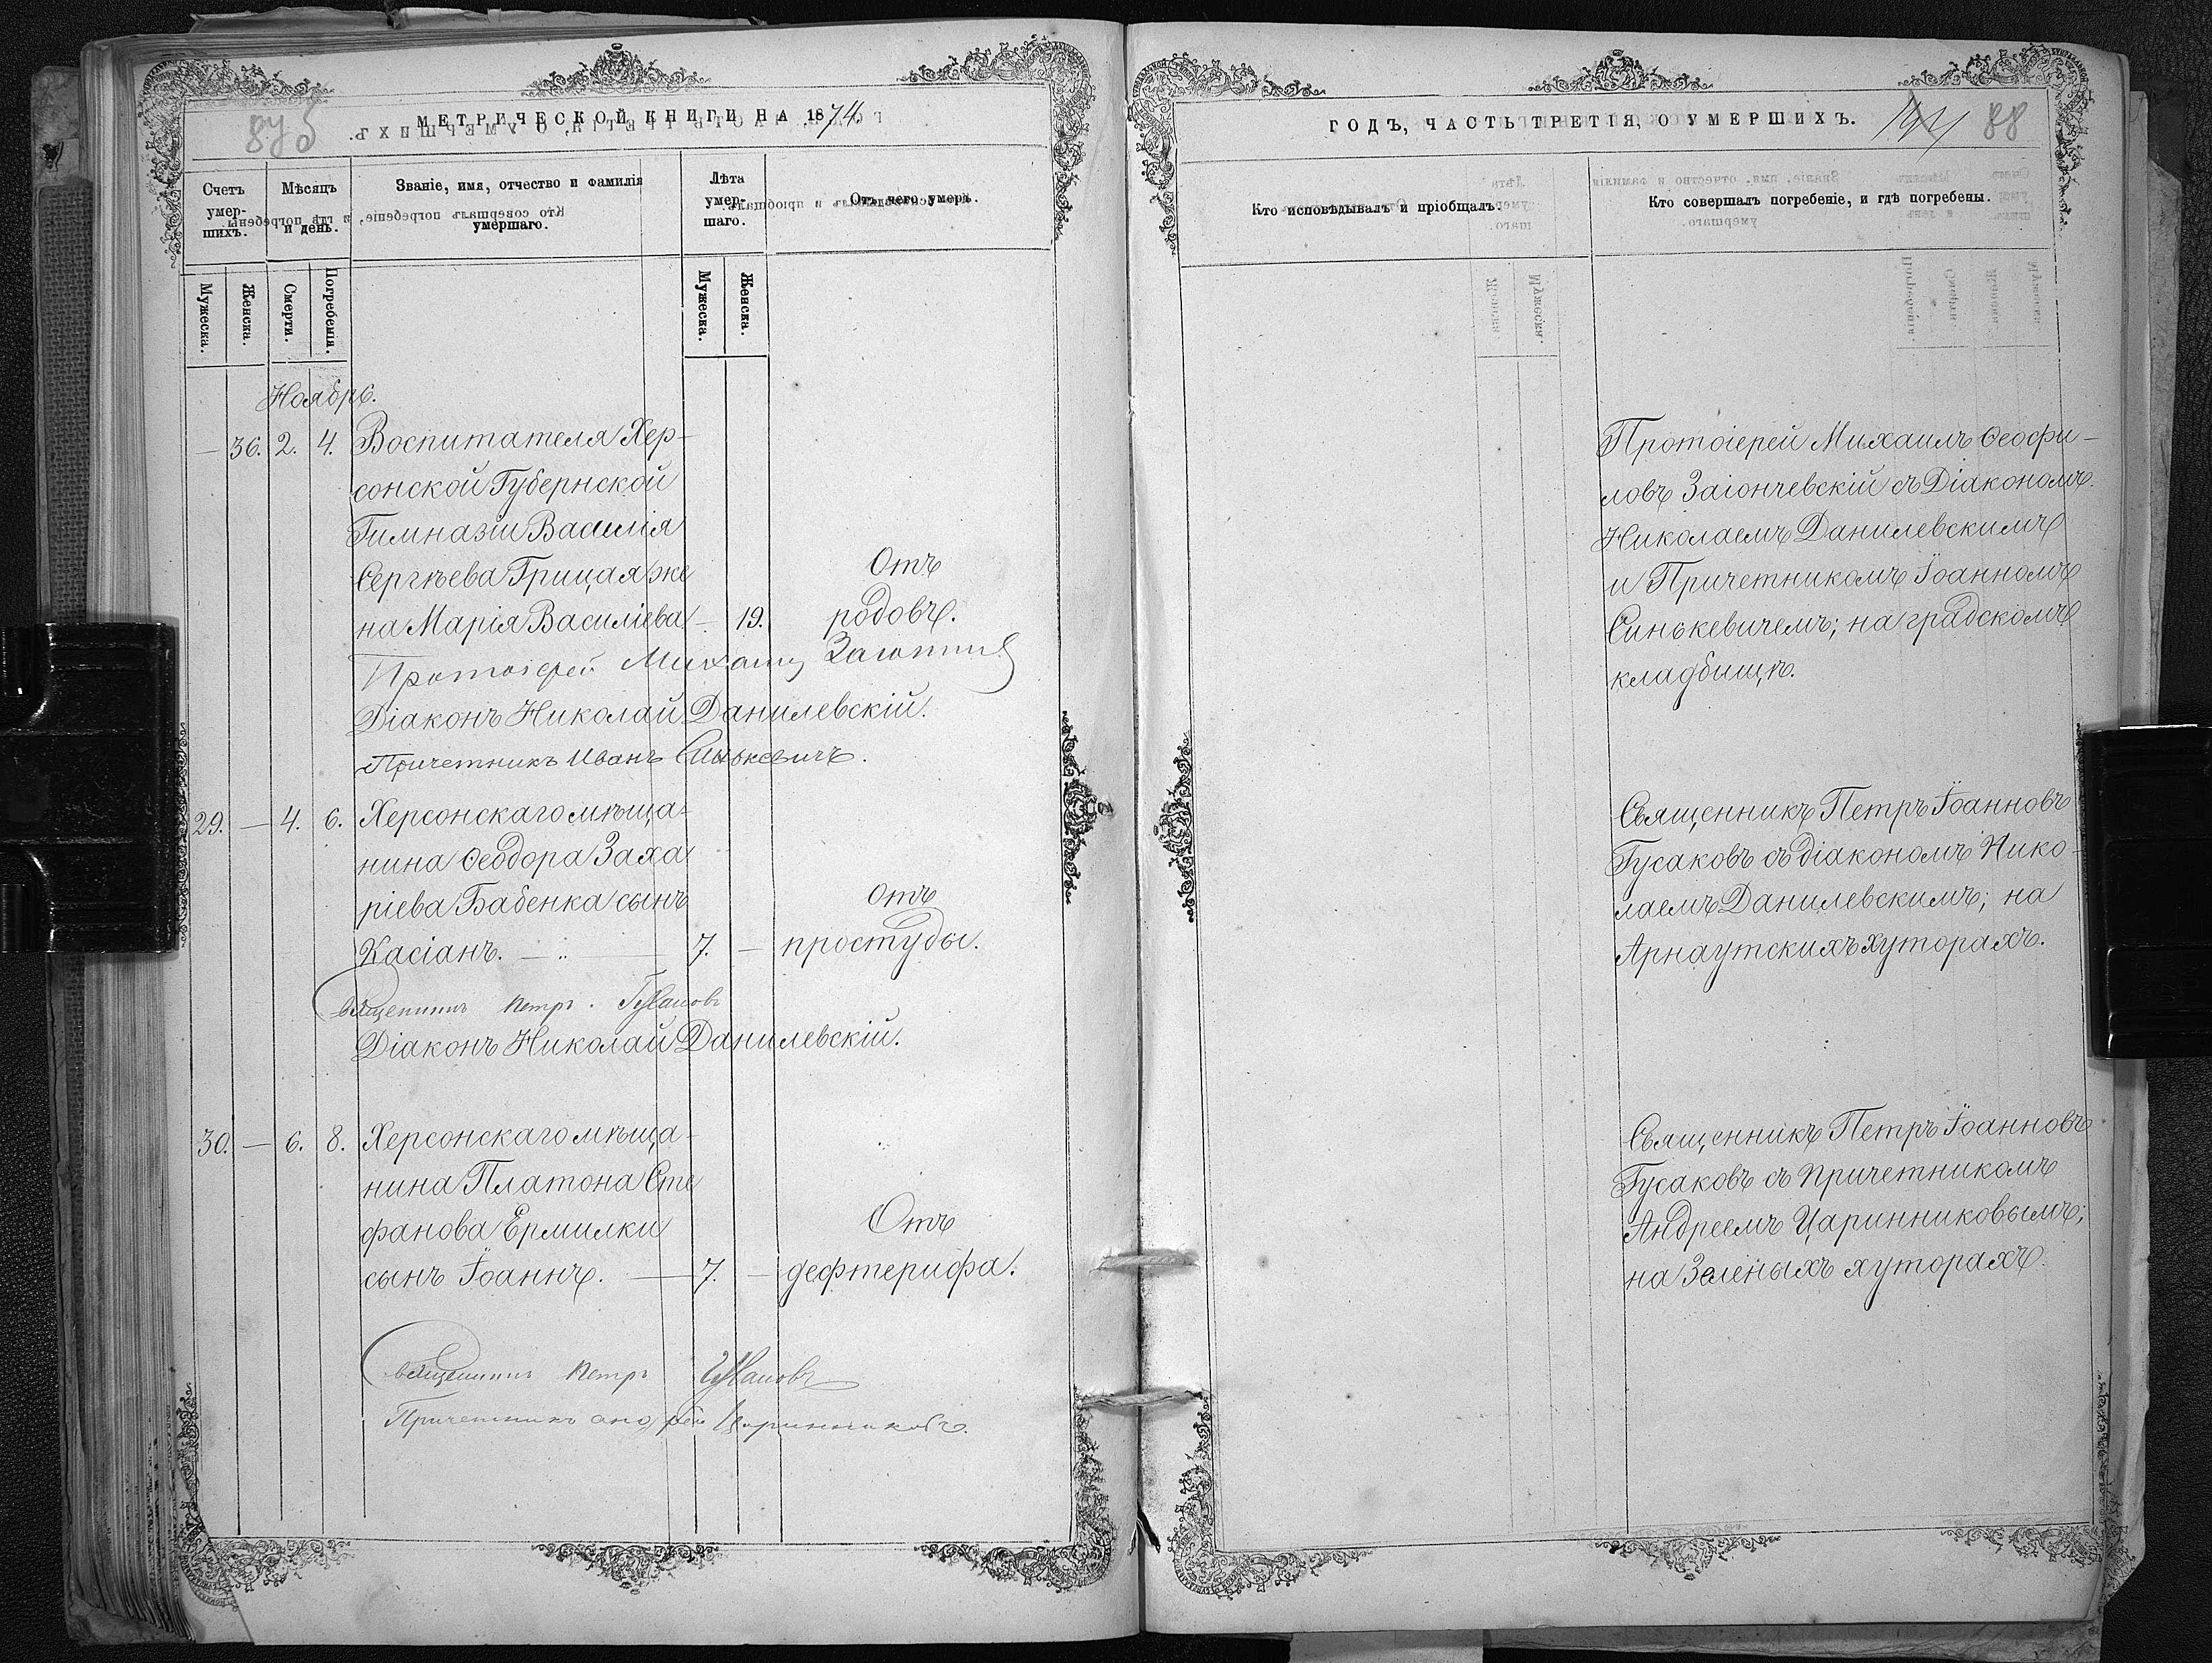 МЕТРИЧЕСКОЙ КНИГИ НА 1874.
Счетъ умер-шихъ.
Мѣсяцъ и день.
Званіе, имя, отчество и фамилія умершаго.
Лѣта умер-шаго.
Отъ чего умеръ.
Мужеска.
Женска.
Смерти.
Погребенія.
Мужеска.
Женска.
Ноябрь.
— 36. 2. 4. Воспитателя Хер-
сонской Губернской
Гимназіи Василія
Сергѣева Грицая же Отъ
на Марія Василіева — 19. родовъ.
Протоіерей Михаилъ
Діаконъ Николай Данилевскій.
Причетникъ Иванъ Синькевичъ.
29. — 4. 6. Херсонскаго мѣща-
нина Ѳеодора Заха
ріева Бабенка сынъ отъ
Касіанъ. — 7. — простуды.
Священникъ Петръ Гусаковъ
Діаконъ Николай Данилевскій.
30. — 6. 8. Херсонскаго мѣща-
нина Платона Сте
фанова Ермилки Отъ
сынъ Іоаннъ. — 7. — дефтерифа.
Священникъ Петръ Гусаковъ
Причетникъ Андрей Царинниковъ.
ГОДЪ, ЧАСТЬ ТРЕТІЯ, О УМЕРШИХЪ. 88
Кто исповѣдывалъ и пріобщалъ.
Кто совершалъ погребеніе, и гдѣ погребены.
Протоіерей Михаилъ Ѳеофи-
ловъ Заіончевскій съ Діакономъ
Николаемъ Данилевскимъ
и Причетникомъ Іоанномъ
Синькевичемъ; на градскомъ
кладбищѣ.
Священникъ Петръ Іоанновъ
Гусаковъ съ діакономъ Нико-
лаемъ Данилевскимъ; на
Арнаутскихъ хуторахъ.
Священникъ Петръ Іоанновъ
Гусаковъ съ Причетникомъ
Андреемъ Царинниковымъ;
на Зеленыхъ хуторахъ.